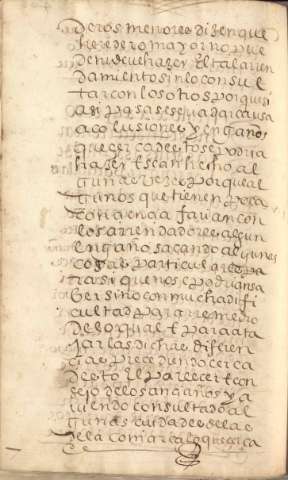 deros menores diçen que
heredero mayor no pue
den ve hazer El tal arren
damiento sin lo consul
tar con los otros porque si
asi pasase sequa dar causa
a colusiones y engaños
que cerca de esto se podria
haser Escan hecho al
gunas veces porque al
gunos que tienen poca
conciencia façian con
los arrendadores algun
engaño sacando algunas
cosas particulares pa
ra si que no se podrian sa
ber sino con mucha difi
cultad para remedio
de lo qual E para ata
jar las dichas diferen
cias precediendo cerca
de esto El parecer E con
sejo de los ançianos y a
viendo consultado al
gunas ciudades de la
de la comarca lo que çerca